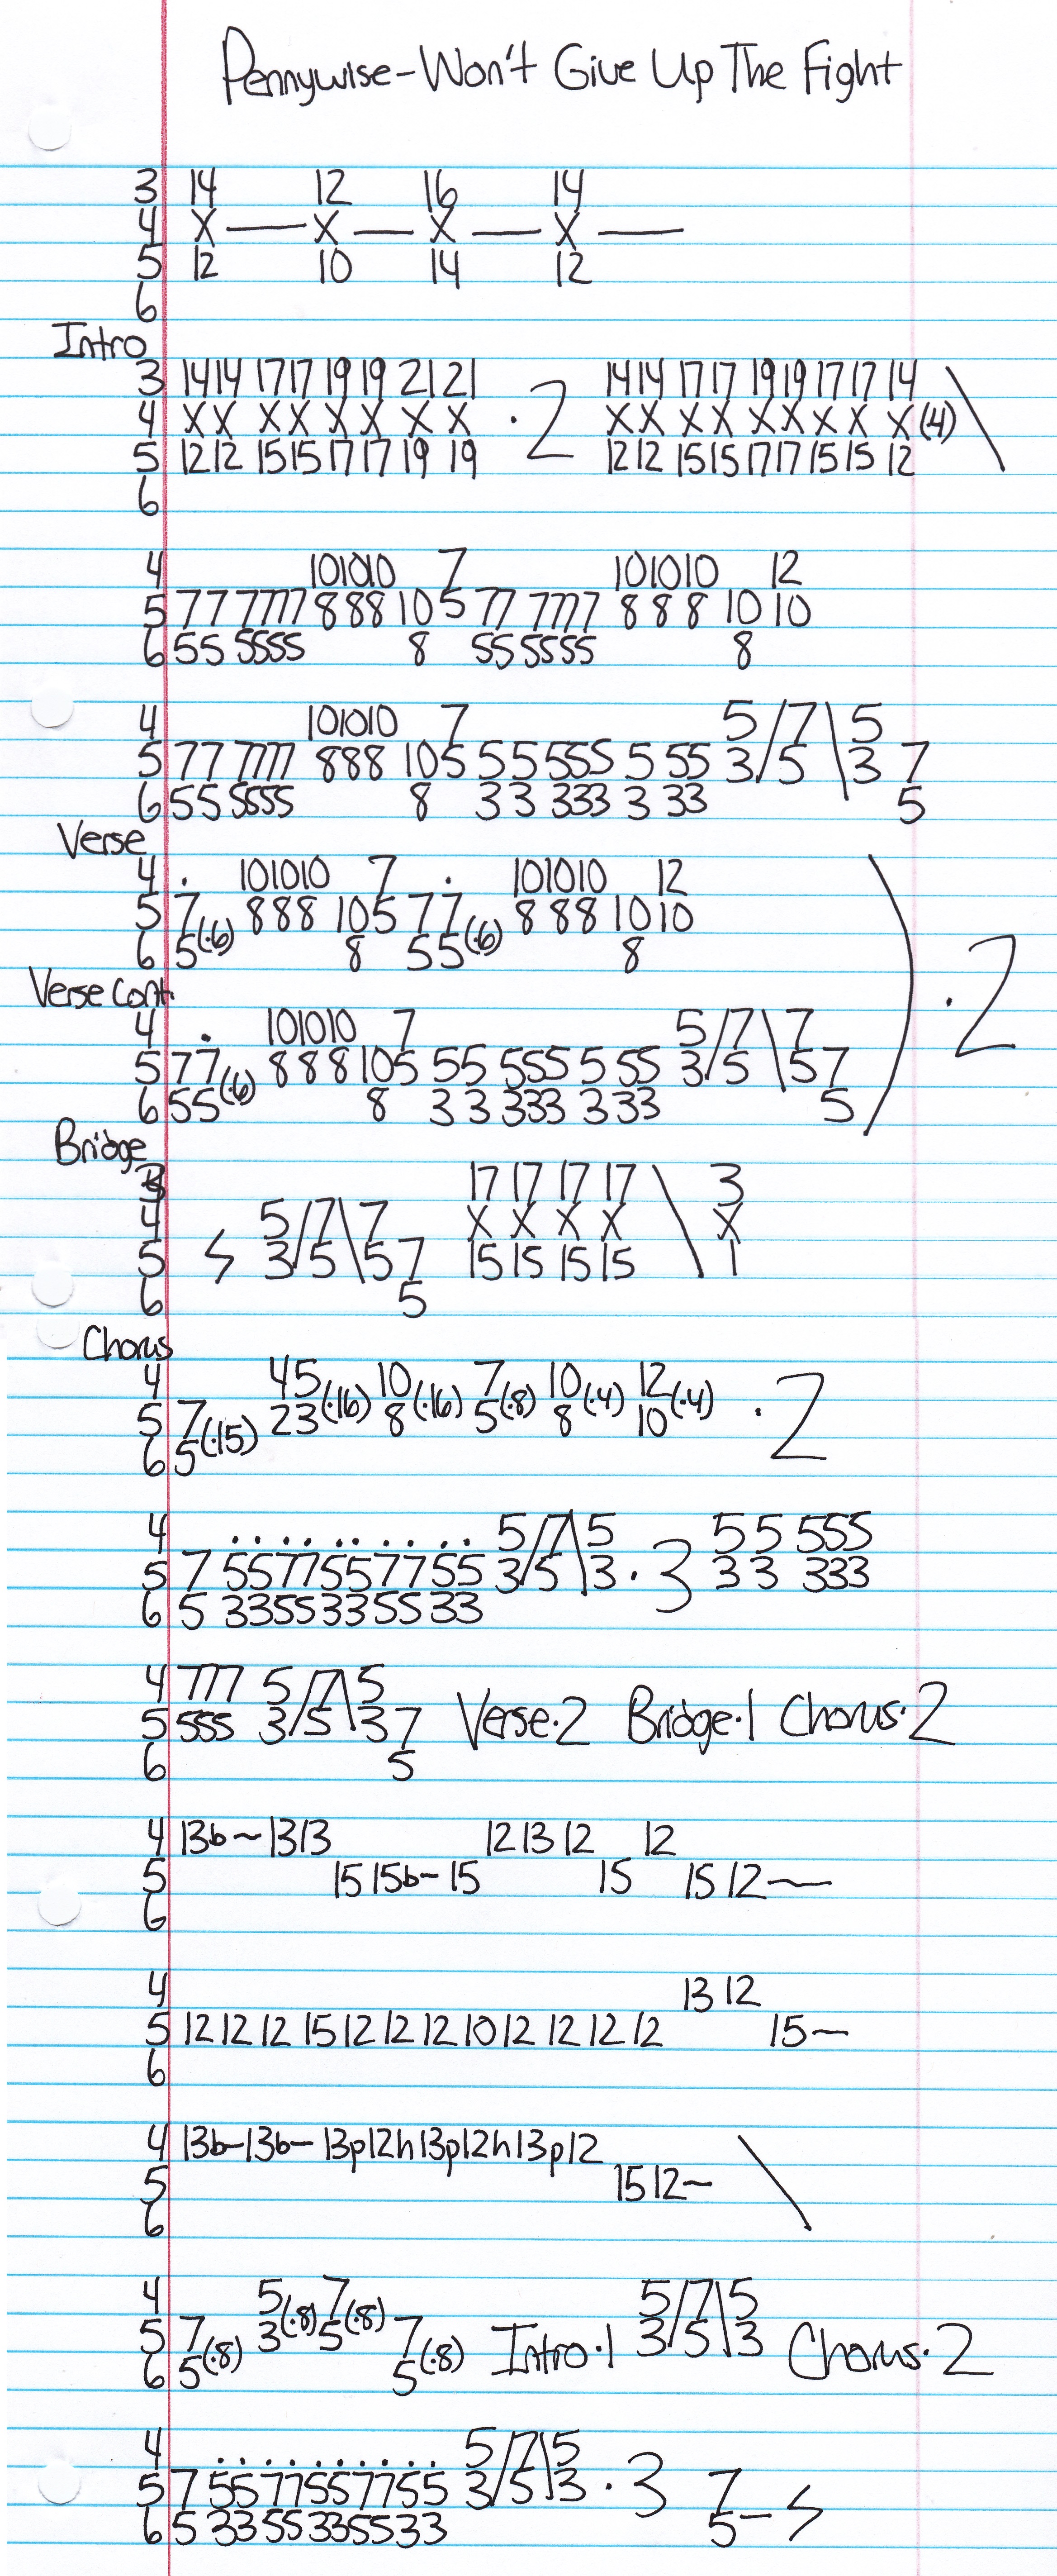 Pennywise-Won't Give Up The Fight
3 14 12 16 14
4 X — X — X — X —
5 12 10 14 12
6
Intro
3 14 14 17 17 19 19 21 21 14 14 17 17 19 19 17 17 14
4 X X X X X X X X · 2 X X X X X X X X X (4) \
5 12 12 15 15 17 17 19 19 12 12 15 15 17 17 15 15 12
6
4 10 10 10 7 10 10 10 12
5 77 7777 8 8 8 10 5 77 7777 8 8 8 10 10
6 55 5555 8 55 5555 8
4 10 10 10 7 5/7\5
5 77 7777 8 8 8 10 5 5 5 555 5 55 3/5\3 7
6 55 5555 8 3 3 333 3 33 5
Verse
4 . 10 10 10 7 . 10 10 10 12
5 7 (·6) 8 8 8 10 5 7 7 (·6) 8 8 8 10 10
6 5 8 5 5 8
) · 2
Verse Cont.
4 . 10 10 10 7 5/7\7
5 7 7 (·6) 8 8 8 10 5 55 555 5 55 3/5\5 7
6 5 5 8 3 3 333 3 33 5
Bridge
3 17 17 17 17 \ 3
4 5/7\7 X X X X X
5 3/5\5 7 15 15 15 15 1
6 5
Chorus
4 4 5 (·16) 10 (·16) 7 (·8) 10 (·4) 12 (·4) · 2
5 7 (·15) 2 3 8 5 8 10
6 5
4 . . . . . . . . . . 5/7\5 5 5 555
5 7 5577557755 3/5\3 · 3 3 3 333
6 5 3355335533
4 777 5/7\5
5 555 3/5\3 7 Verse·2 Bridge·1 Chorus·2
6 5
4 13b~ 13 13 12 13 12 12
5 15 15b~ 15 15 15 12~
6
4 13 12
5 12 12 12 15 12 12 12 10 12 12 12 12 15~
6
4 13b~13b~ 13p12h13p12h13p12 \
5 15 12~
6
4 5 (·8) 7 (·8) 5/7\5
5 7 (·8) 3 5 7 (·8) Intro·1 3/5\3 Chorus·2
6 5 5
4 . . . . . . . . . . 5/7\5
5 7 5577557755 3/5\3 · 3 7
6 5 3355335533 5 –